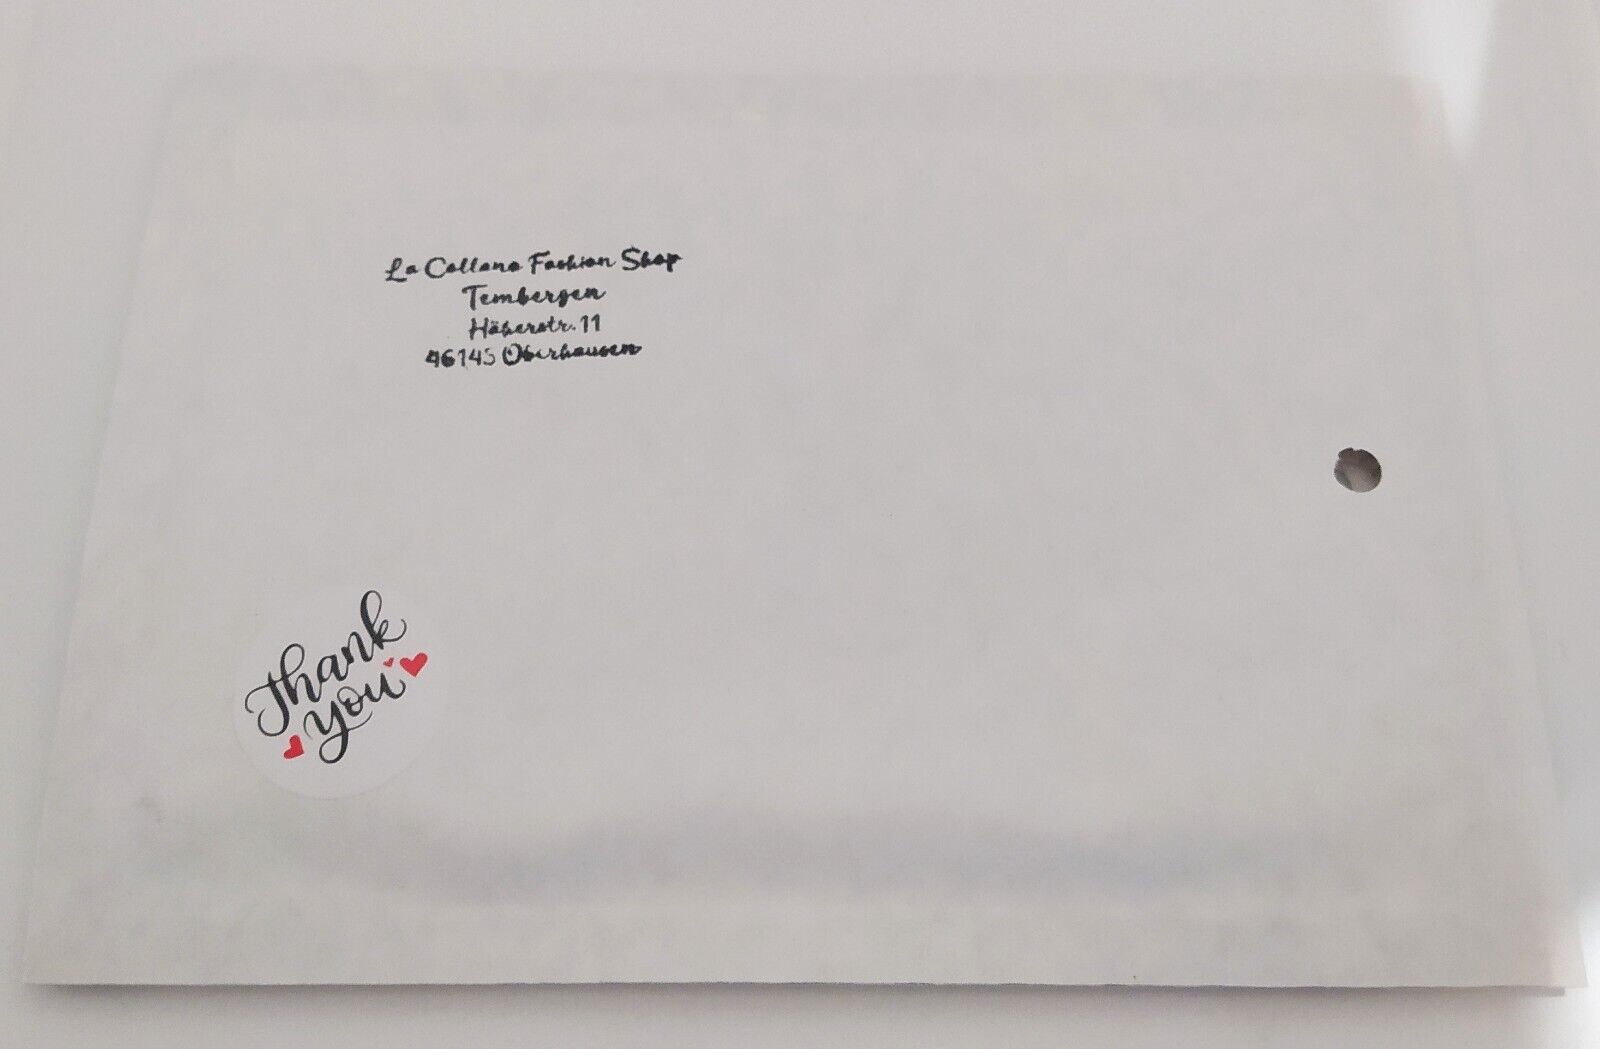 La Collana Fashion Shop
Tembergen
11
46145 Oberhausen
Thank
you